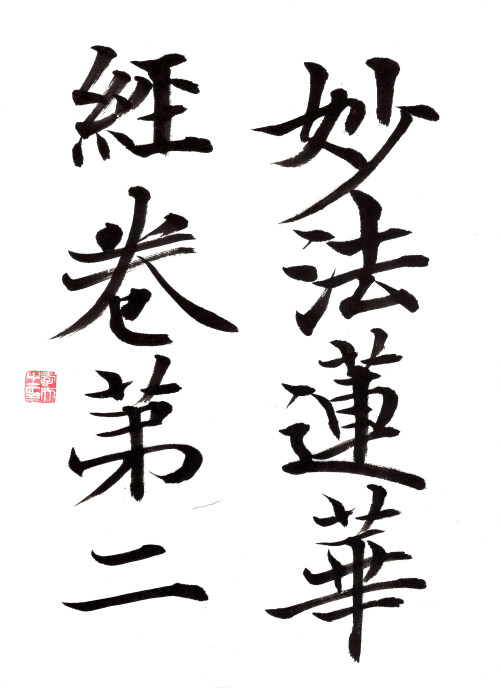 妙法蓮華
經卷第二